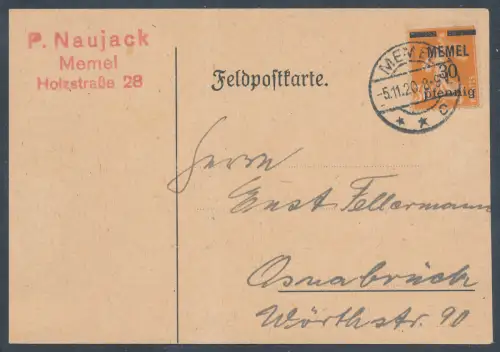 P. Naujack
Memel
Holzstraße 28
Feldpostkarte.
MEMEL
-5.11.20.
c
MEMEL
30
pfennig
Herrn
Ernst Fellermann
Osnabrück
Wörthstr. 90